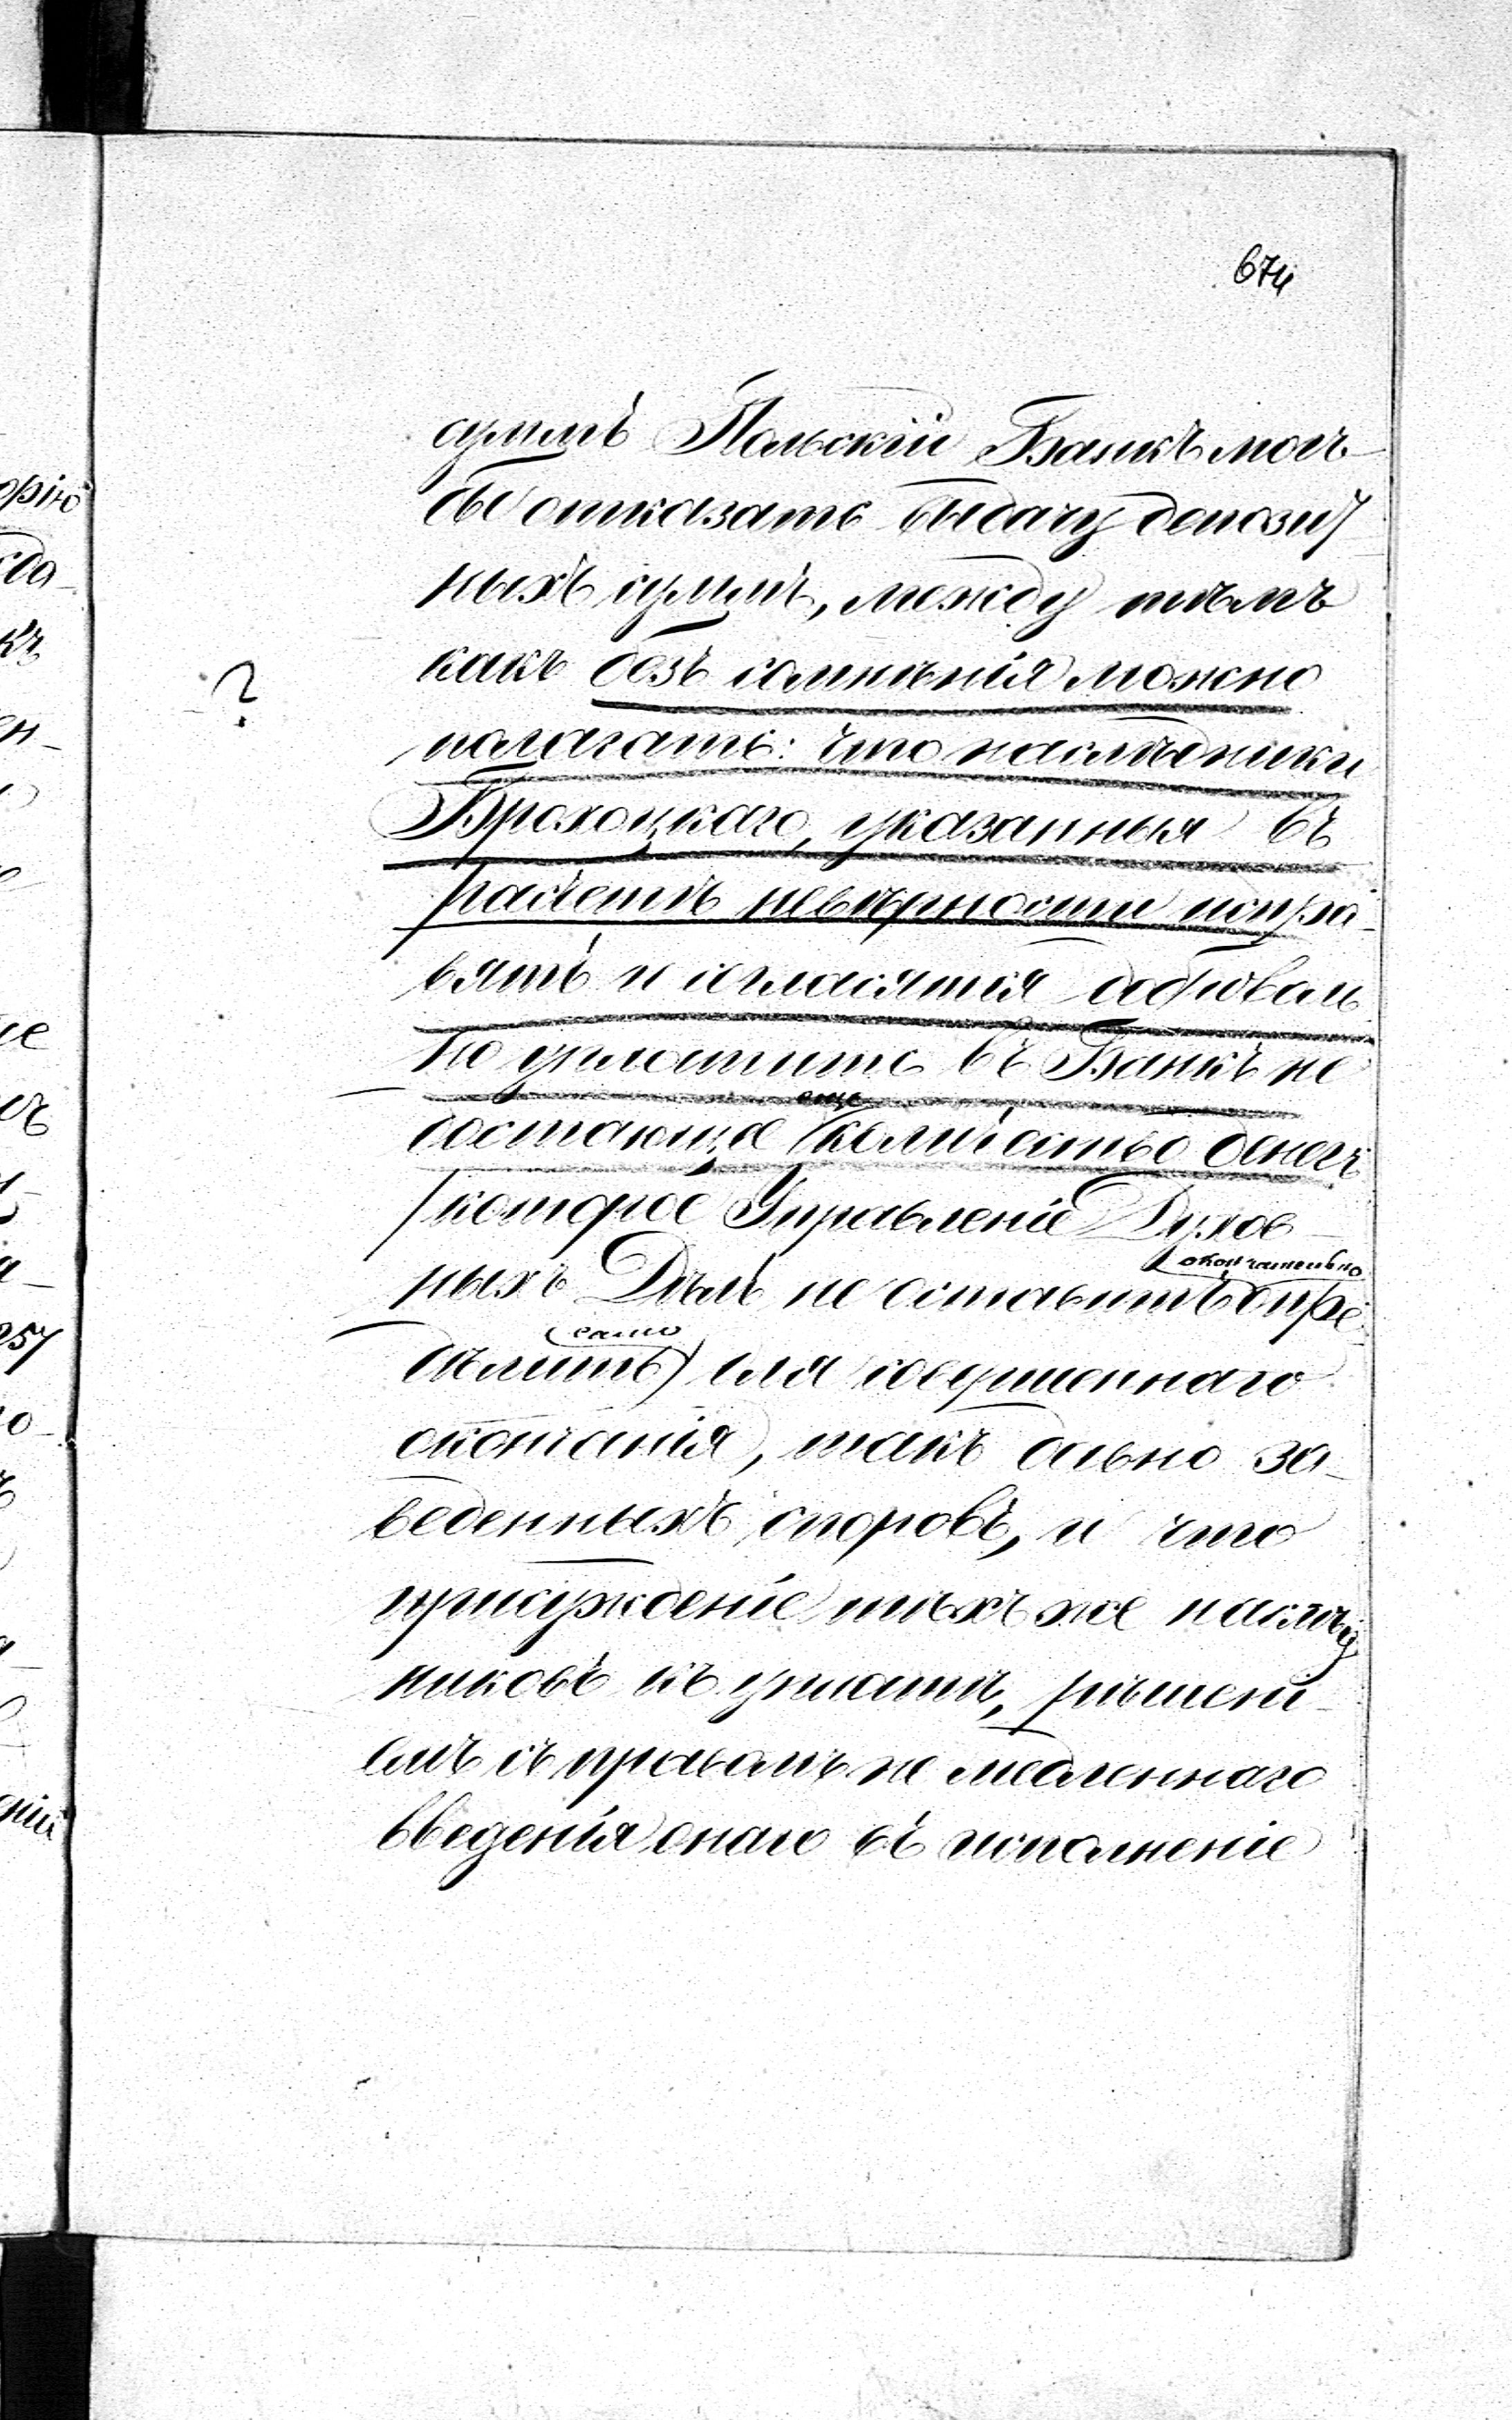 674
суммъ Польскій Банкъ могъ
бы отказать выдачу депозит
ныхъ суммъ, между тѣмъ
какъ безъ сомнѣнія можно
?
полагать: что наслѣдники
Брохоцкаго, указанныя въ
расчетѣ невѣрности испра-
вятъ и согласятся добровол
но уплотить въ Банкъ не
еще
достающе количество денегъ
/которое Управленіе Духов-
окончательно
ныхъ Дѣлъ не оставитъ опре
само
дѣлить) для совершеннаго
окончанія, такъ давно за-
веденныхъ споровъ, и что
присужденіе тѣхъ же наслѣд
никовъ къ уплатѣ, рѣшені-
емъ съ правомъ не медленнаго
введенія онаго въ исполненіе